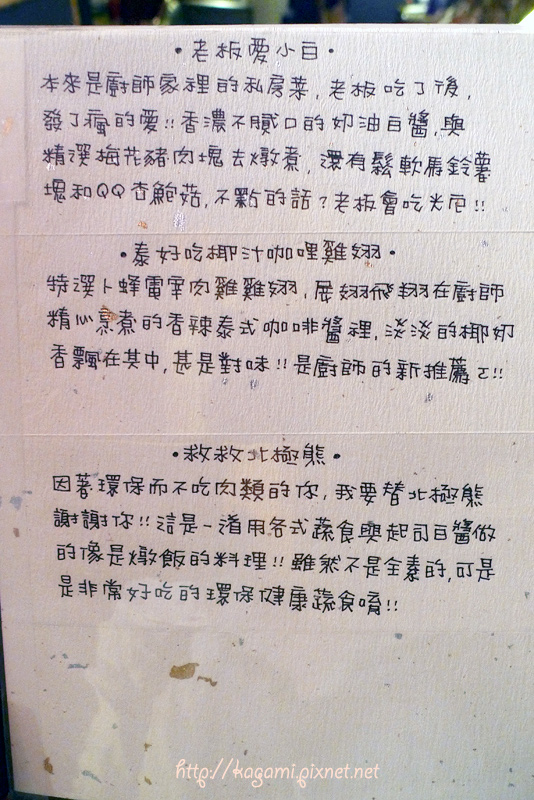 •老板愛小白•
本來是廚師家裡的私房菜,老板吃了後,
發了瘋的愛!!香濃不膩口的奶油白醬,與
精選梅花豬肉塊去燉煮,還有鬆軟馬鈴薯
塊和QQ杏鮑菇,不點的話?老板會吃光厄!!
•泰好吃椰汁咖哩雞翅•
特選卜蜂電宰肉雞雞翅,展翅飛翔在廚師
精心熬煮的香辣泰式咖啡醬裡,淡淡的椰奶
香飄在其中,甚是對味!!是廚師的新推薦ㄛ!!
•救救北極熊•
因著環保而不吃肉類的你,我要替北極熊
謝謝你!!這是一道用各式蔬食與起司白醬做
的像是燉飯的料理!!雖然不是全素的,可是
是非常好吃的環保健康蔬食唷!!
http://kagami.pixnet.net